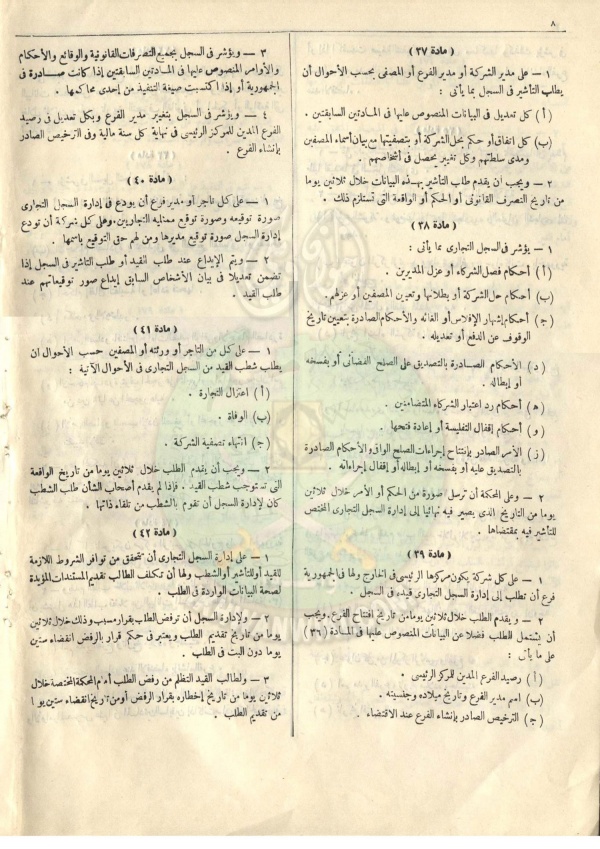 ٨
( مادة ٣٧ )
١ — على مدير الشركة أو مدير الفرع أو المصفى بحسب الأحوال أن
يطلب التأشير فى السجل بما يأتى :
( أ ) كل تعديل فى البيانات المنصوص عليها فى المادتين السابقتين .
(ب) كل اتفاق أو حكم بحل الشركة أو بتصفيتها مع بيان أسماء المصفين
ومدى سلطتهم وكل تغيير يحصل فى أشخاصهم .
٢ — ويجب ان يقدم طلب التأشير بهذه البيانات خلال ثلاثين يوما
من تاريخ التصرف القانونى أو الحكم أو الواقعة التى تستلزم ذلك .
( مادة ٣٨ )
١ — يؤشر فى السجل التجارى بما يأتى :
( أ ) أحكام فصل الشركاء أو عزل المديرين .
(ب) أحكام حل الشركة أو بطلانها وتعيين المصفين أو عزلهم .
(ج) أحكام إشهار الإفلاس أو الغائه والأحكام الصادرة بتعيين تاريخ
الوقوف عن الدفع أو تعديله .
(د) الأحكام الصادرة بالتصديق على الصلح القضائى أو بفسخه
أو إبطاله .
(ه) أحكام رد اعتبار الشركاء المتضامنين .
(و) أحكام إقفال التفليسة أو إعادة فتحها .
(ز) الأمر الصادر بافتتاح إجراءات الصلح الواقى والأحكام الصادرة
بالتصديق عليه أو بفسخه أو إبطاله أو إقفال إجراءاته .
٢ — وعلى المحكمة أن ترسل صورة من الحكم أو الأمر خلال ثلاثين
يوما من التاريخ الذى يصير فيه نهائيا إلى إدارة السجل التجارى المختص
للتأشير فيه بمقتضاها .
( مادة ٣٩ )
١ — على كل شركة يكون مركزها الرئيسى فى الخارج ولها فى الجمهورية
فرع أن تطلب إلى إدارة السجل التجارى قيده فى السجل .
٢ — و يقدم الطلب خلال ثلاثين يوما من تاريخ افتتاح الفرع، ويجب
أن يشتمل للطلب فضلا عن البيانات المنصوص عليها فى المادة (٣٦)
على ما يأتى :
( أ ) رصيد الفرع المدين للمركز الرئيسى .
(ب) اسم مدير الفرع وتاريخ ميلاده وجنسيته .
(ج) الترخيص الصادر بإنشاء الفرع عند الاقتضاء .
٣ — ويؤشر فى السجل بجميع التصرفات القانونية والوقائع والأحكام
والأوامر المنصوص عليها فى المادتين السابقتين إذا كانت صادرة فى
الجمهورية أو إذا اكتسبت صيغة التنفيذ من إحدى محاكمها .
٤ — ويؤشر فى السجل بتغيير مدير الفرع وبكل تعديل فى رصيد
الفرع المدين للمركز الرئيسى فى نهاية كل سنة مالية وفى الترخيص الصادر
بإنشاء الفرع .
( مادة ٤٠ )
١ — على كل تاجر أو مدير فرع أن يودع فى إدارة السجل التجارى
صورة توقيعه وصورة توقيع ممثليه التجاريين، وعلى كل شركة أن تودع
إدارة السجل صورة توقيع مديرها ومن لهم حق التوقيع باسمها .
٢ — ويتم الإيداع عند طلب القيد أو طلب التأشير فى السجل إذا
تضمن تعديلا فى بيان الأشخاص السابق إيداع صور توقيعاتهم عند
طلب القيد .
( مادة ٤١ )
١ — على كل من التاجر أو ورثته أو المصفين حسب الأحوال ان
يطلب شطب القيد من السجل التجارى فى الأحوال الآتية :
( أ ) اعتزال التجارة .
(ب) الوفاة .
(ج) انتهاء تصفية الشركة .
٢ — ويجب أن يقدم الطلب خلال ثلاثين يوما من تاريخ الواقعة
التى تستوجب شطب القيد . فإذا لم يقدم أصحاب الشأن طلب الشطب
كان لإدارة السجل أن تقوم بالشطب من تلقاء ذاتها .
( مادة ٤٢ )
١ — على إدارة السجل التجارى أن تتحقق من توافر الشروط اللازمة
للقيد أو للتأشير أو الشطب ولها أن تكلف الطالب تقديم المستندات المؤيدة
لصحة البيانات الواردة فى الطلب .
٢ — ولإدارة السجل أن ترفض الطلب بقرار مسبب وذلك خلال ثلاثين
يوما من تاريخ تقديم الطلب ويعتبر فى حكم قرار بالرفض انقضاء ستين
يوما دون البت فى الطلب .
٣ — ولطالب القيد التظلم من رفض الطلب أمام المحكمة المختصة خلال
ثلاثين يوما من تاريخ إخطاره بقرار الرفض أو من تاريخ انقضاء ستين يوما
من تقديم الطلب .